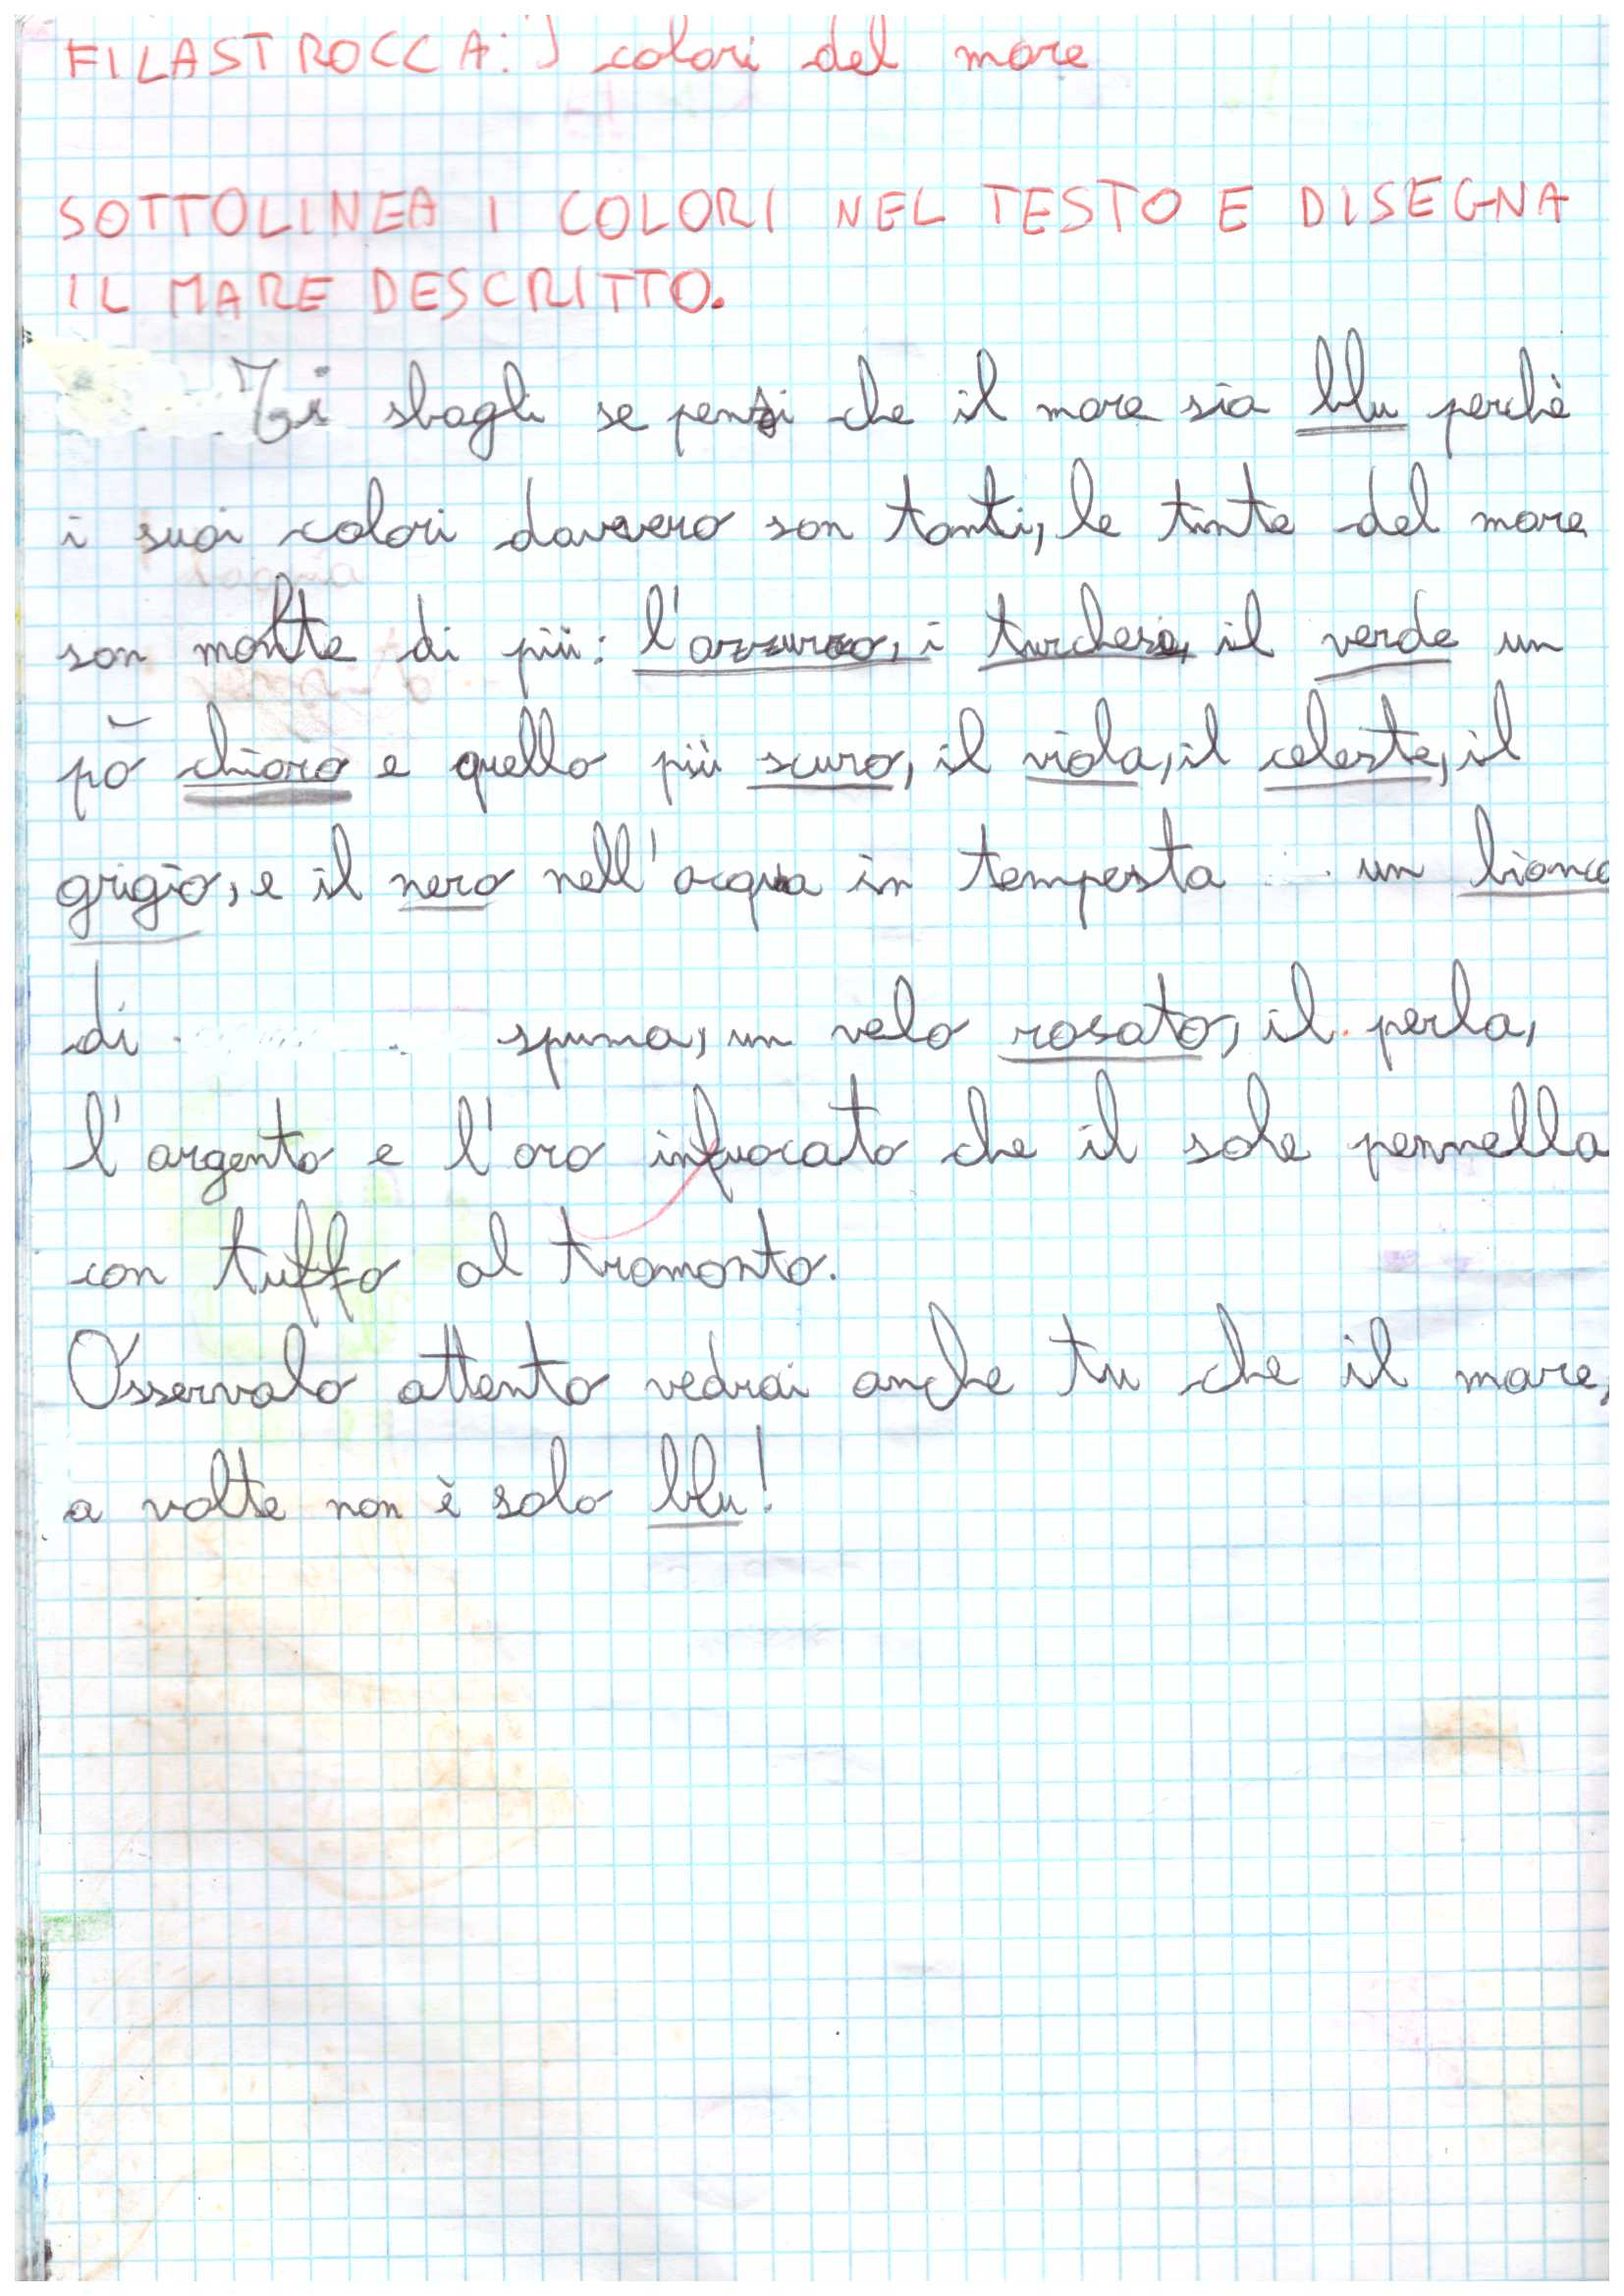 FILASTROCCA: I colori del mare
SOTTOLINEA I COLORI NEL TESTO E DISEGNA
IL MARE DESCRITTO.
Ti sbagli se pensi che il mare sia blu perchè
i suoi colori davvero son tanti, le tinte del mare
son molte di più: l'azzurro, i turchesi, il verde un
pò chiaro e quello più scuro, il viola, il celeste, il
grigio, e il nero nell'acqua in tempesta un bianco
di spuma, un velo rosato, il perla,
l'argento e l'oro infuocato che il sole pennella
con tuffo al tramonto.
Osservalo attento vedrai anche tu che il mare,
a volte non è solo blu!